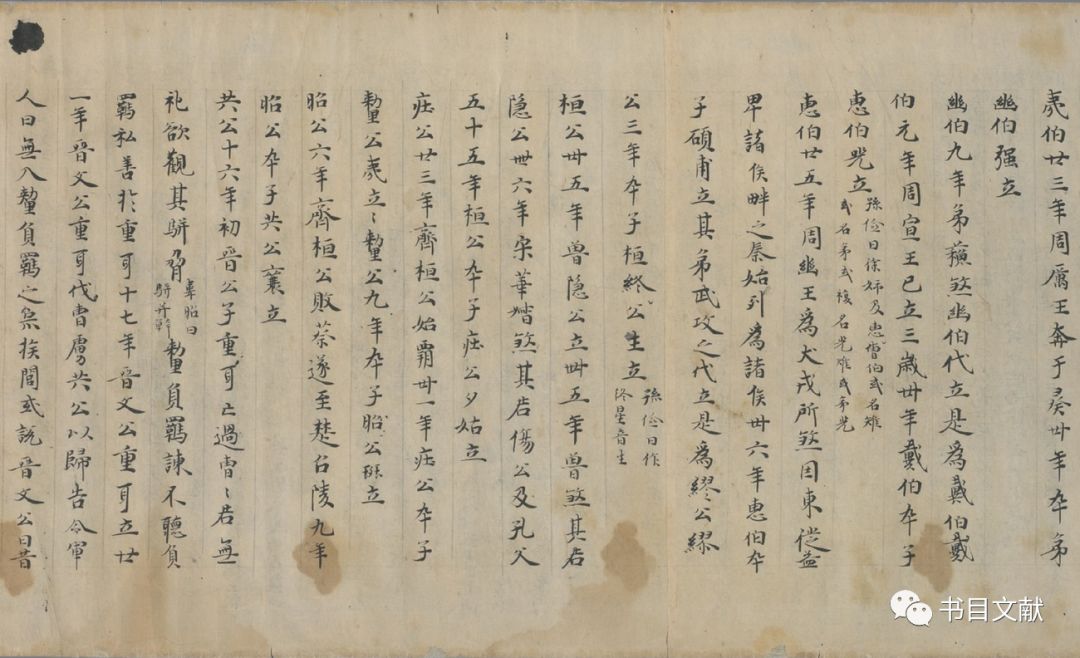 夷伯廿三年周厲王奔于彘卅年卒弟
幽伯强立
幽伯九年弟蘇煞幽伯代立是為戴伯戴
伯元年周宣王已立三歲卅年戴伯卒子
惠伯兕立孫儉曰徐姊及忠曹伯或名雉或名弟或複名兕雉或弟兕
惠伯廿五年周幽王為犬戎所煞因東徙益
卑諸侯畔之秦始列為諸侯卅六年惠伯卒
子碩甫立其弟武攻之代立是為繆公繆
公三年卒子桓終公生立孫儉曰作終星音生
桓公卅五年魯隱公立卌五年魯煞其君
隱公卌六年宋華督煞其君傷公及孔父
五十五年桓公卒子庄公夕姑立
庄公廿三年齊桓公始霸卅一年庄公卒子
釐公夷立〻釐公九年卒子昭公班立
昭公六年齊桓公敗蔡遂至楚召陵九年
昭公卒子共公襄立
共公十六年初晋公子重耳亡過曹〻君無
礼欲觀其駢脅韋昭曰駢并幹釐負羈諫不聽負
羈私善於重耳廿一年晋文公重耳立廿
一年晋文公重耳伐曹虜共公以歸告令軍
人曰無入釐負羈之宗族閭或說晋文公曰昔
书目文献